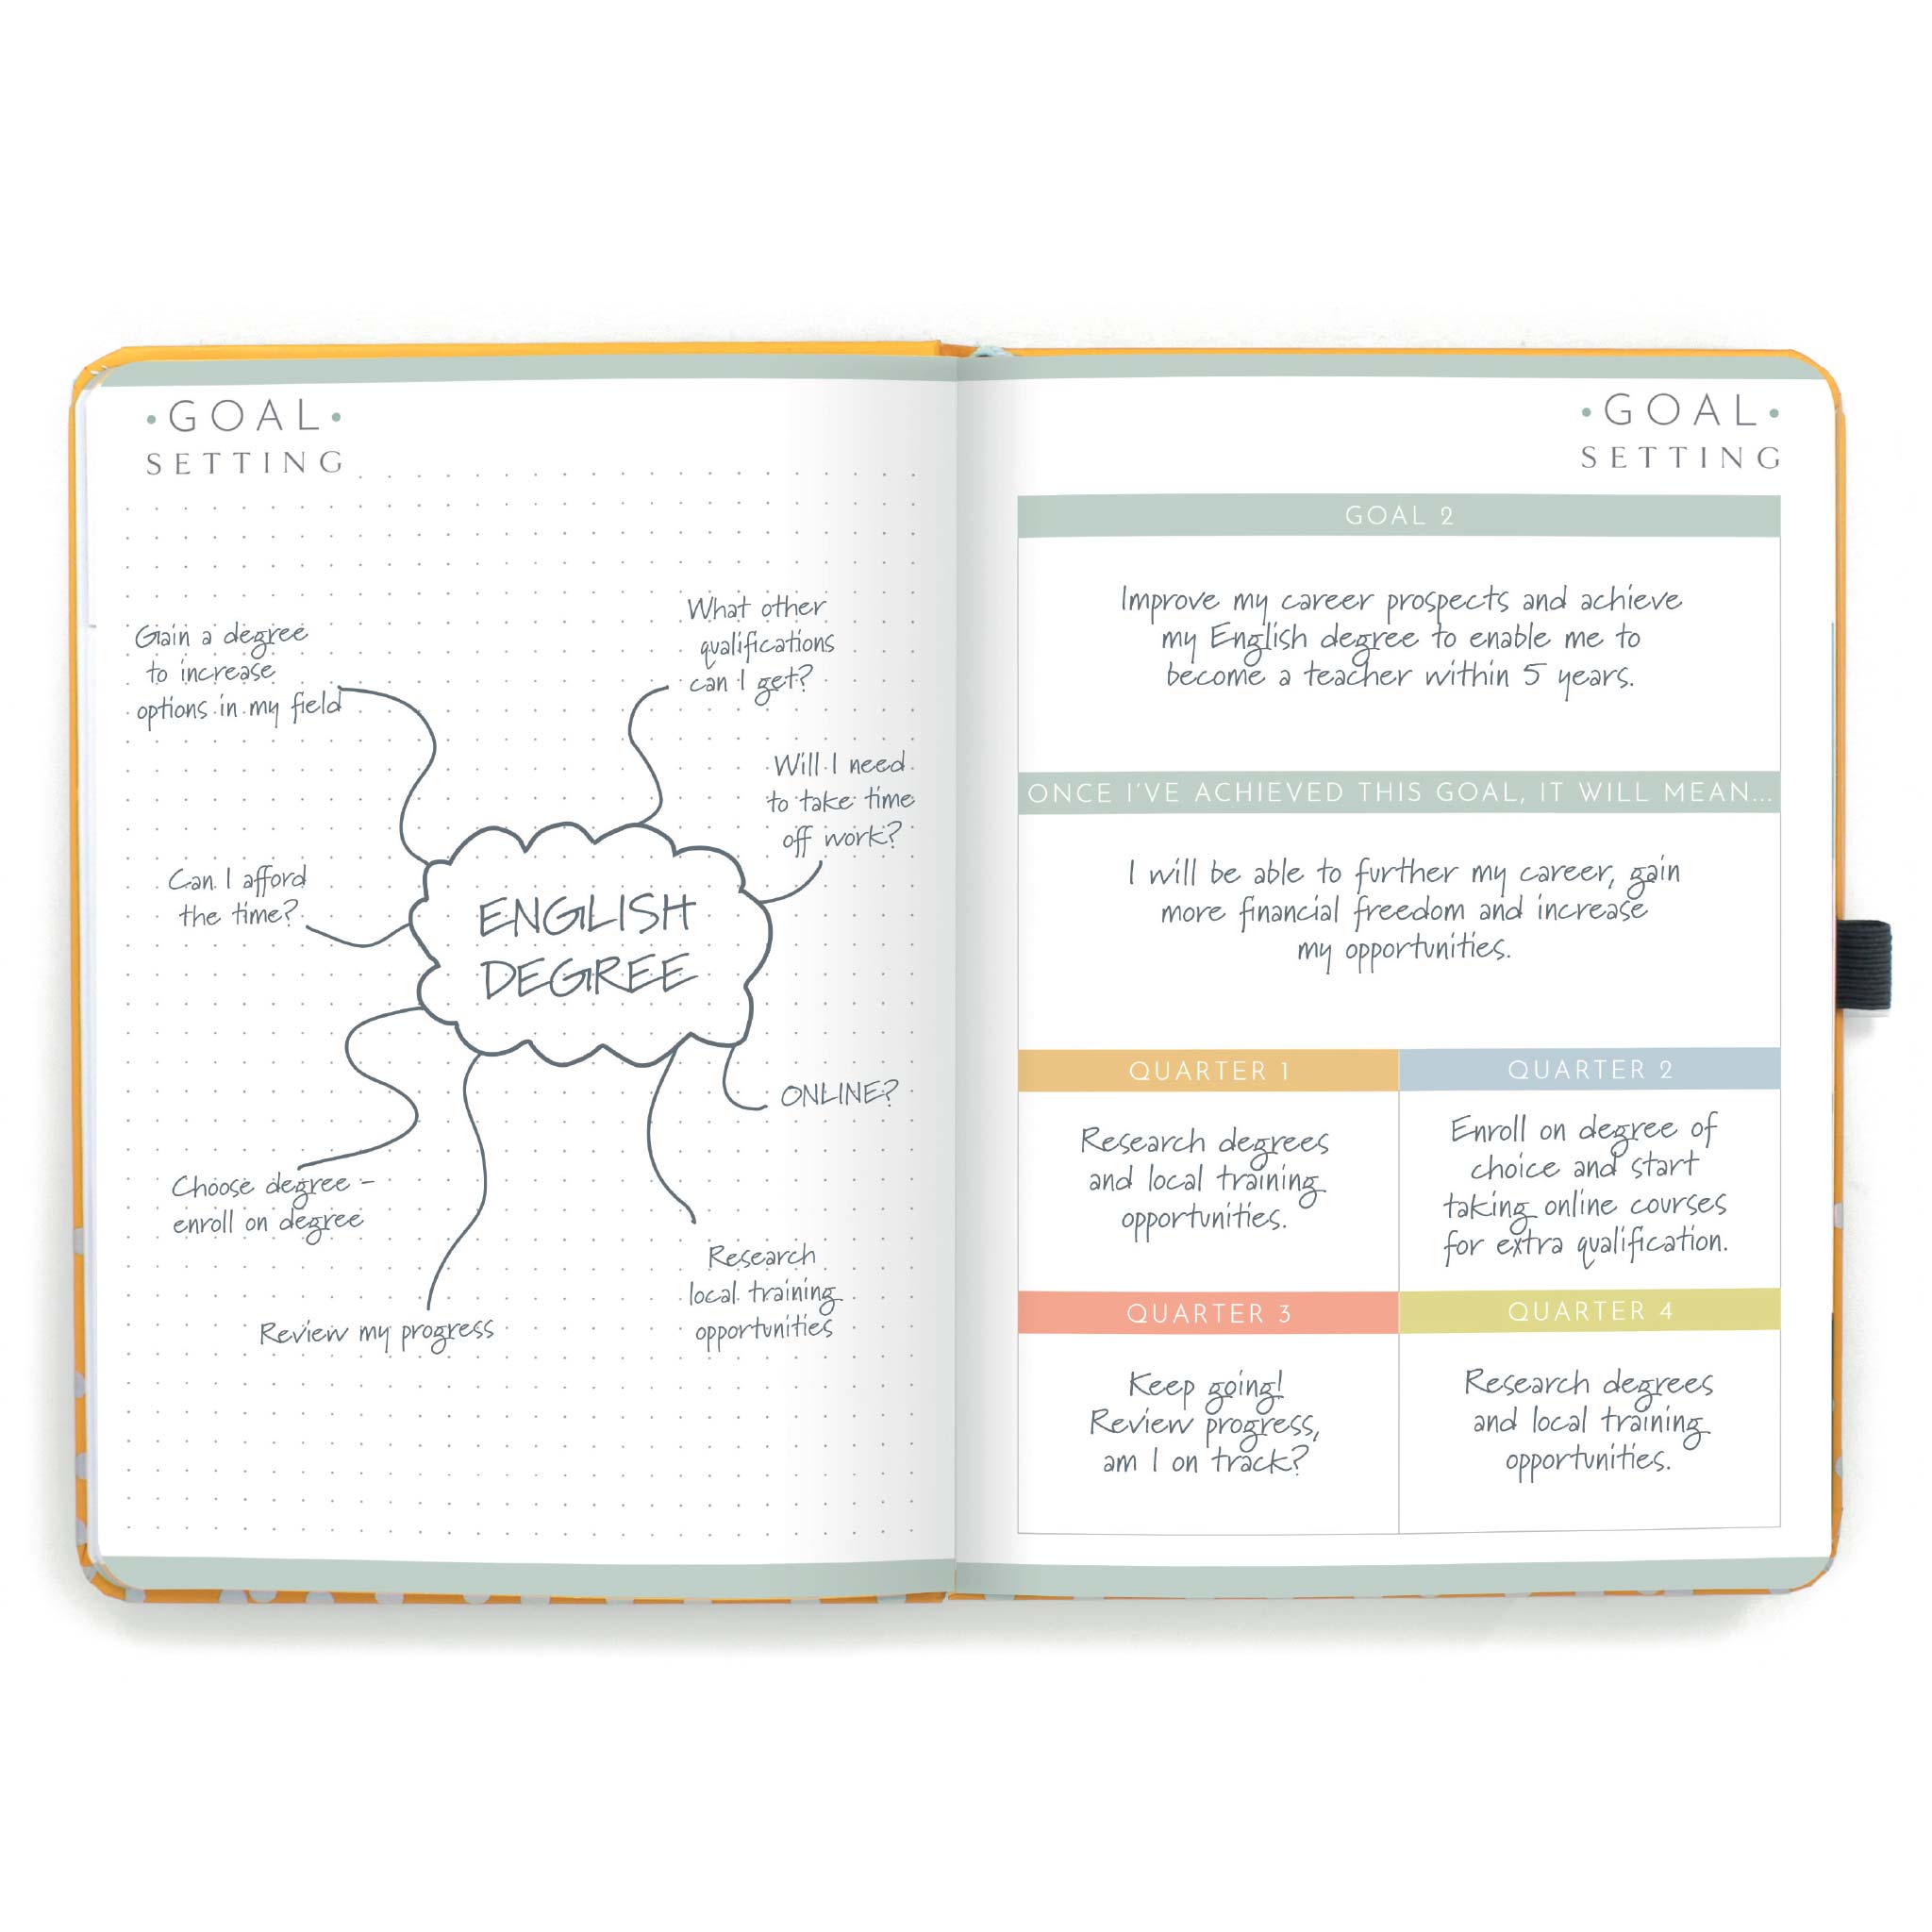 • GOAL •
SETTING
Gain a degree
to increase
options in my field
What other
qualifications
can I get?
Will I need
to take time
off work?
Can I afford
the time?
ENGLISH
DEGREE
ONLINE?
Choose degree -
enroll on degree
Review my progress
Research
local training
opportunities
• GOAL •
SETTING
GOAL 2
Improve my career prospects and achieve
my English degree to enable me to
become a teacher within 5 years.
ONCE I'VE ACHIEVED THIS GOAL, IT WILL MEAN...
I will be able to further my career, gain
more financial freedom and increase
my opportunities.
QUARTER 1
Research degrees
and local training
opportunities.
QUARTER 2
Enroll on degree of
choice and start
taking online courses
for extra qualification.
QUARTER 3
Keep going!
Review progress,
am I on track?
QUARTER 4
Research degrees
and local training
opportunities.